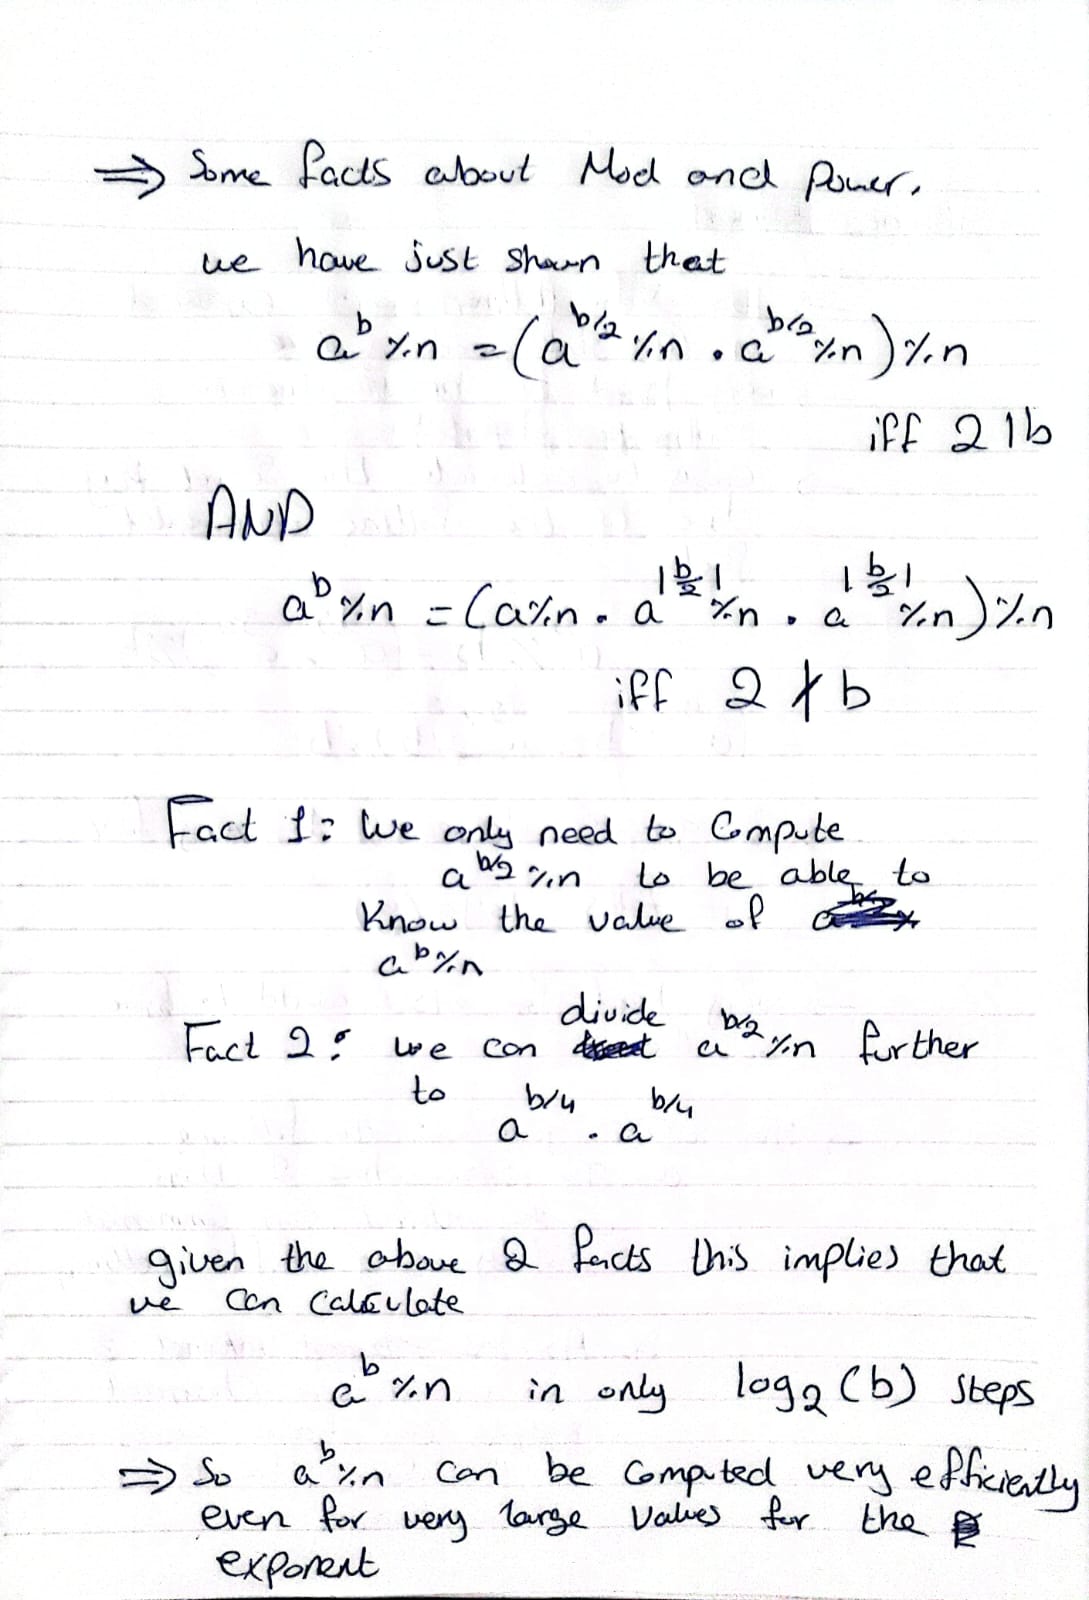 ⇒ Some facts about Mod and Power.
we have just shown that
a^b %n = (a^{b/2} %n . a^{b/2} %n) %n
iff 2 | b
AND
a^b %n = (a%n . a^{|b/2|} %n . a^{|b/2|} %n) %n
iff 2 ∤ b
Fact 1: We only need to Compute
a^{b/2} %n to be able to
Know the value of
a^b %n
Fact 2: we can divide a^{b/2} %n further
to a^{b/4} . a^{b/4}
given the above 2 facts this implies that
we can calculate
a^b %n in only log₂(b) steps
⇒ So a^b %n can be computed very efficiently
even for very large values for the
exponent